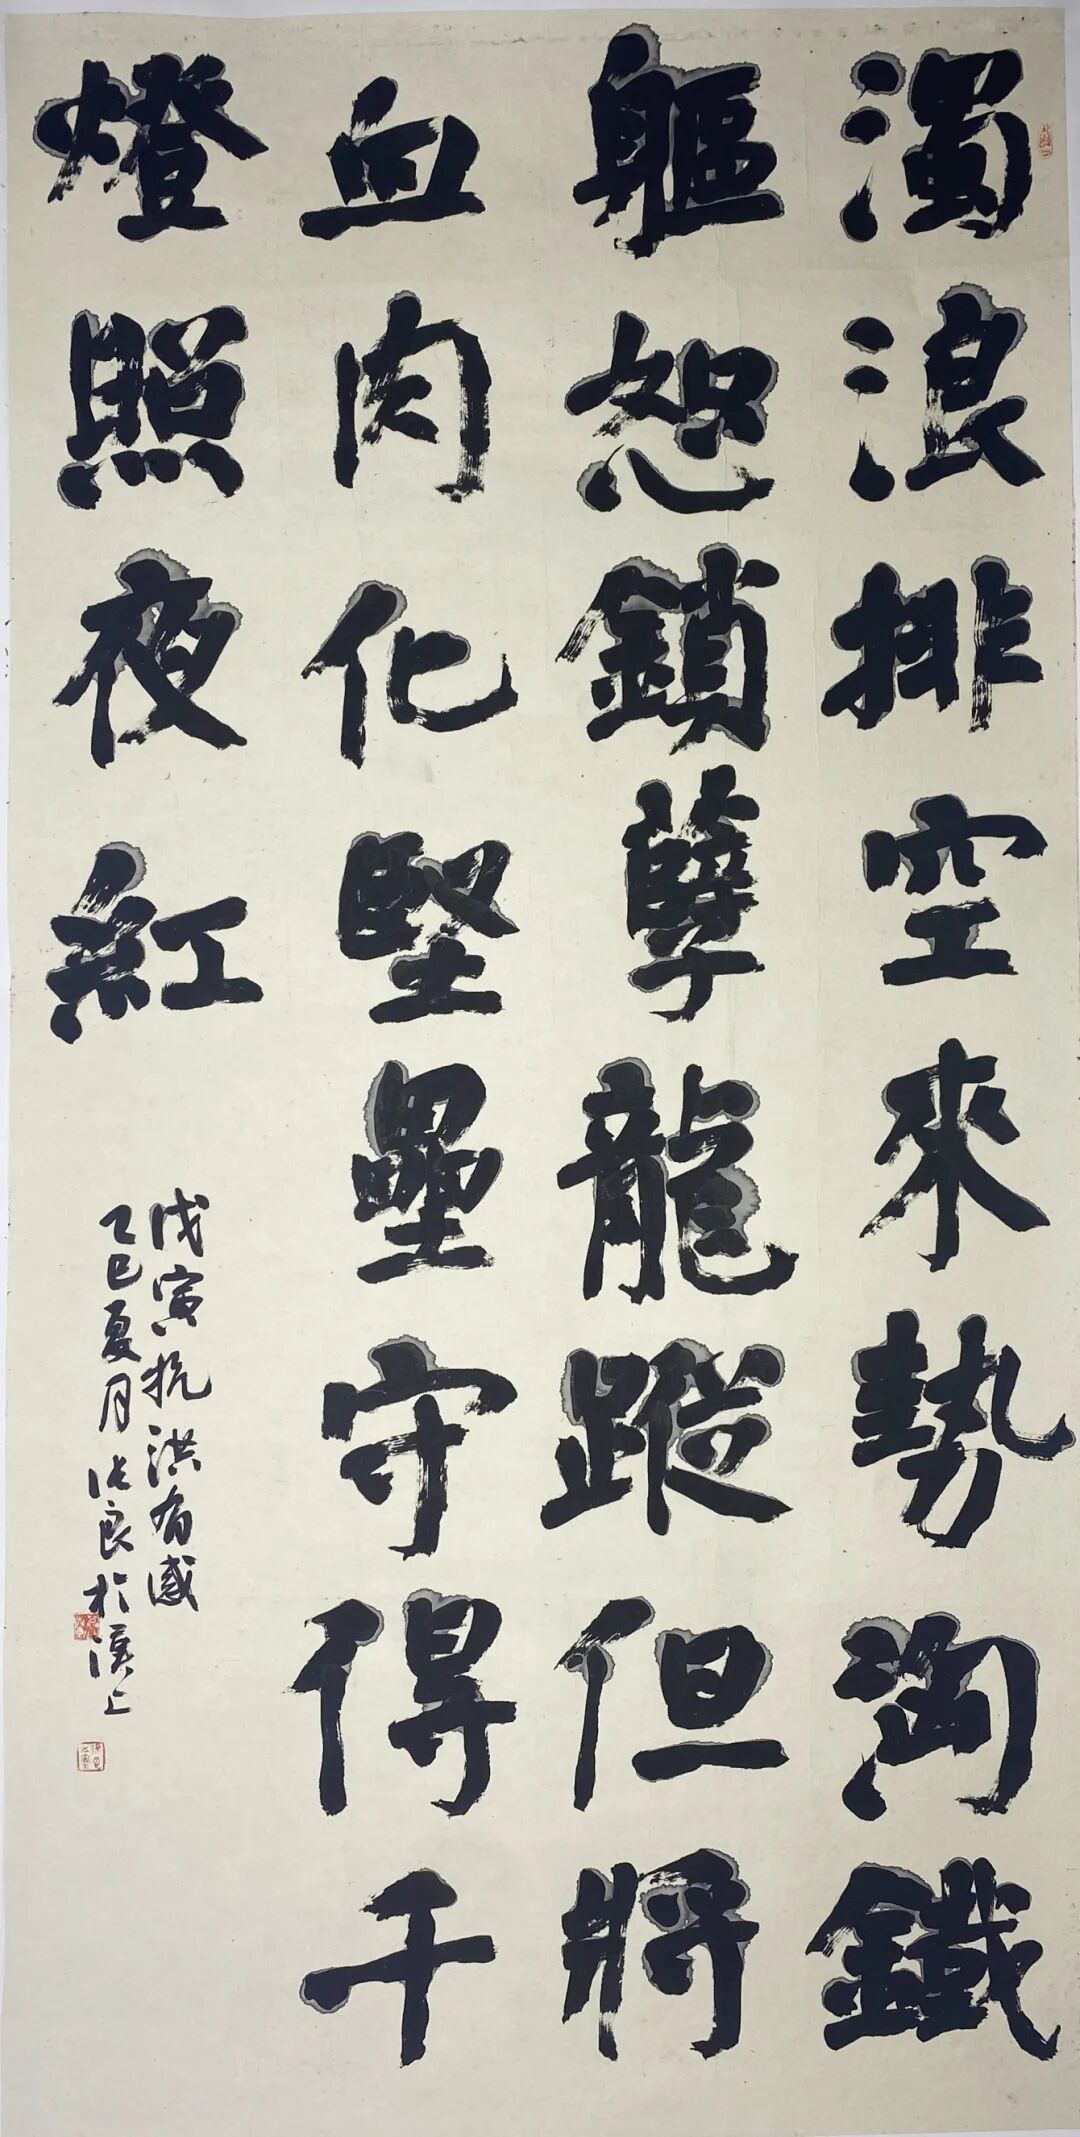 濁浪排空來勢洶鐵
軀怒鎖孽龍蹤但將
血肉化堅壘守得千
燈照夜紅
戊寅抗洪有感
乙巳夏月張良於漢上